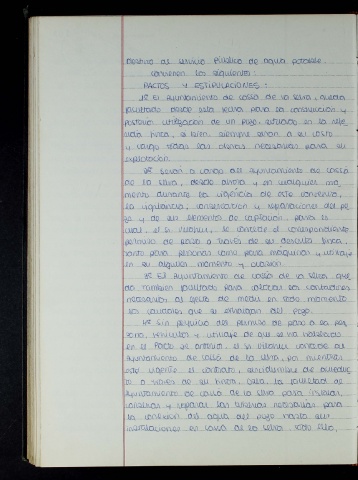 destino al servicio público de agua potable.
convienen los siguientes:
PACTOS Y ESTIPULACIONES:
1º El Ayuntamiento de Cassá de la Selva, queda
facultado desde esta fecha para la construcción y
posterior utilización de un pozo, situado en la
finca, si bien siempre serán a su costa
y cargo todas las obras necesarias para su
explotación.
2º Serán a cargo del Ayuntamiento de Cassá
de la Selva, desde ahora y en cualquier mo-
mento durante la vigencia de este convenio,
la vigilancia, conservación y reparaciones del po-
zo y de sus elementos de captación, para lo
cual, el Sr. se concede el correspondiente
permiso de paso a través de su finca,
tanto para personas como para máquinas y
en su momento y ocasión.
3º El Ayuntamiento de Cassá de la Selva que-
da también facultado para colocar los contadores
necesarios al efecto de medir en todo momento
los caudales que se extraigan del pozo.
4º Sin perjuicio del permiso de paso a las per-
sonas, vehículos y que se ha
en el Pacto anterior, el Sr. concede al
Ayuntamiento de Cassá de la Selva, por mientras
esté vigente el contrato, servidumbre de acueduc-
to a través de su finca, con la facultad
Ayuntamiento de Cassá de la Selva para instalar,
conservar y reparar las tuberías necesarias para
la conducción del agua del pozo hasta sus
instalaciones en Cassá de la Selva. Todo ello,